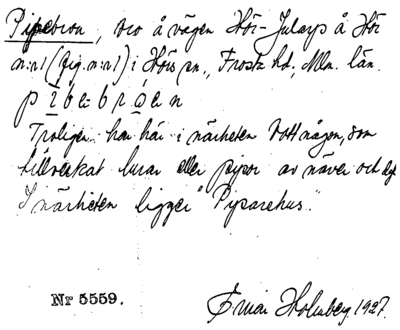 Pipebron, bro å vägen Hör-Jularp å Hör
n:o1 (fig. n:o1) i Hörs sn., Frosta hd, Mlm. län.
pibe-brøen
Troligen har här i närheten bott någon, som
tillverkat lurar eller pipor av näver och dyl.
I närheten ligger "Piparehus".
Nr 5559.
Holmberg 1927.